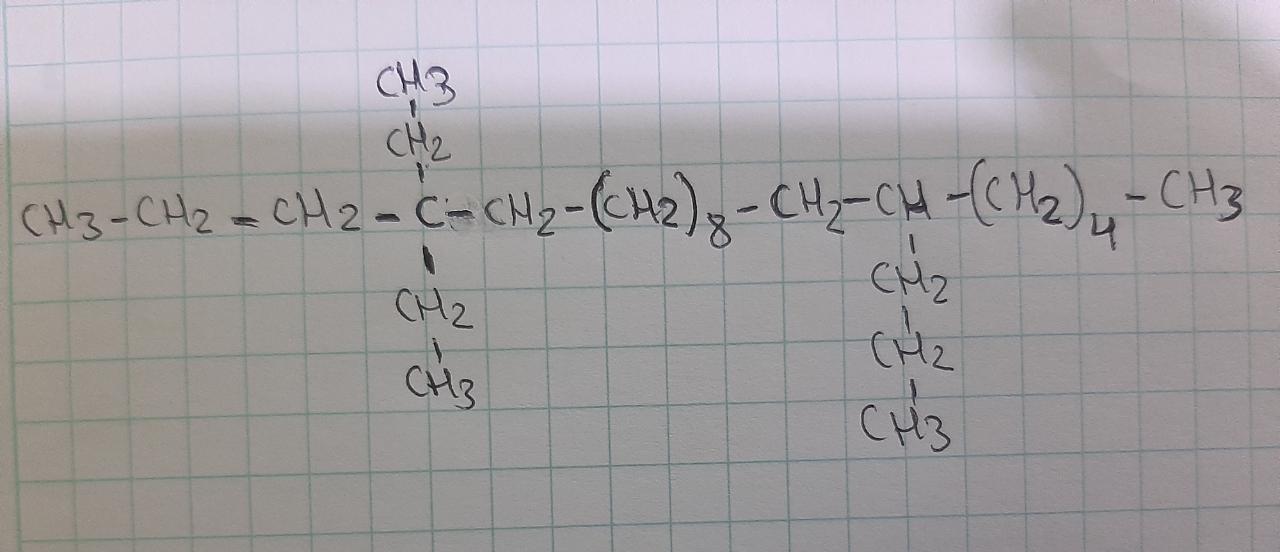 CH3
CH2
CH3-CH2=CH2-C-CH2-(CH2)8-CH2-CH-(CH2)4-CH3
CH2 CH2
CH3 CH2
CH3